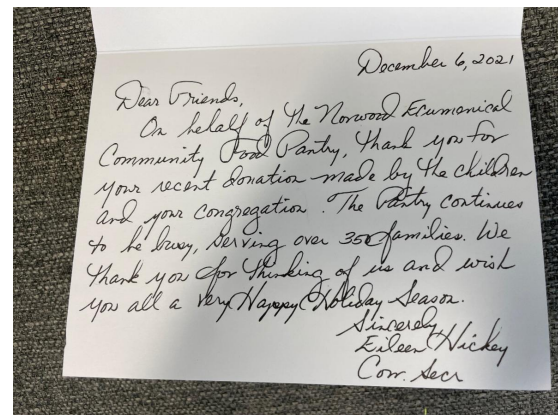 December 6, 2021
Dear Friends,
On behalf of the Norwood Ecumenical
Community Food Pantry, thank you for
your recent donation made by the children
and your congregation. The Pantry continues
to be busy, serving over 350 families. We
thank you for thinking of us and wish
you all a very Happy Holiday Season.
Sincerely,
Eileen Hickey
Corr. Secr